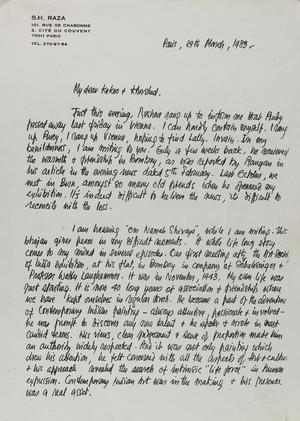 S.H. RAZA
101, RUE DE CHARONNE
2, CITÉ DU COUVENT
75011 PARIS
TÉL. 370-97-64
Paris, 29th March, 1983,-
My dear Kekoo & Khorshed,
Just this evening, Krishna rang up to inform me that Rudy
passed away last friday in Vienna. I can hardly contain myself. I rang
up Puey, I rang up Vienna, hoping to find Lally. Invain. In my
bewilderment, I am writing to you. Only a few weeks back, he received
the warmth & friendship in Bombay, as was reported by Pangan in
his article in the evening news dated 5th February. Last October, we
met in Bonn, amongst so many old friends when he opened my
exhibition. It's indeed difficult to believe the news, its difficult to
reconcile with the loss.
I am hearing "Om Namah Shivaya", while I am writing. This
bhajan gives peace in very difficult moments. A whole life long story
comes to my mind in several episodes. Our first meeting after the Art Society
of India exhibition, at his flat, in Bombay in company of Schlesinger &
Professor Walter Langhammer. It was in November, 1943. My own life was
just starting. It is now 40 long years of association & friendship where
we have kept ourselves in regular touch. He became a part of the adventure
of Contemporary Indian painting - always attentive, passionate & involved -
he was prompt to discover any new talent & he spoke & wrote in most
candid terms. His views, clear judgement & sense of proportion made him
an authority widely respected. And it was not only painting which
drew his attention, he felt concerned with all the aspects of Art & culture
& his approach revealed the search of intrinsic "life force" in human
expression. Contemporary Indian Art was in the making & his presence
was a real asset.